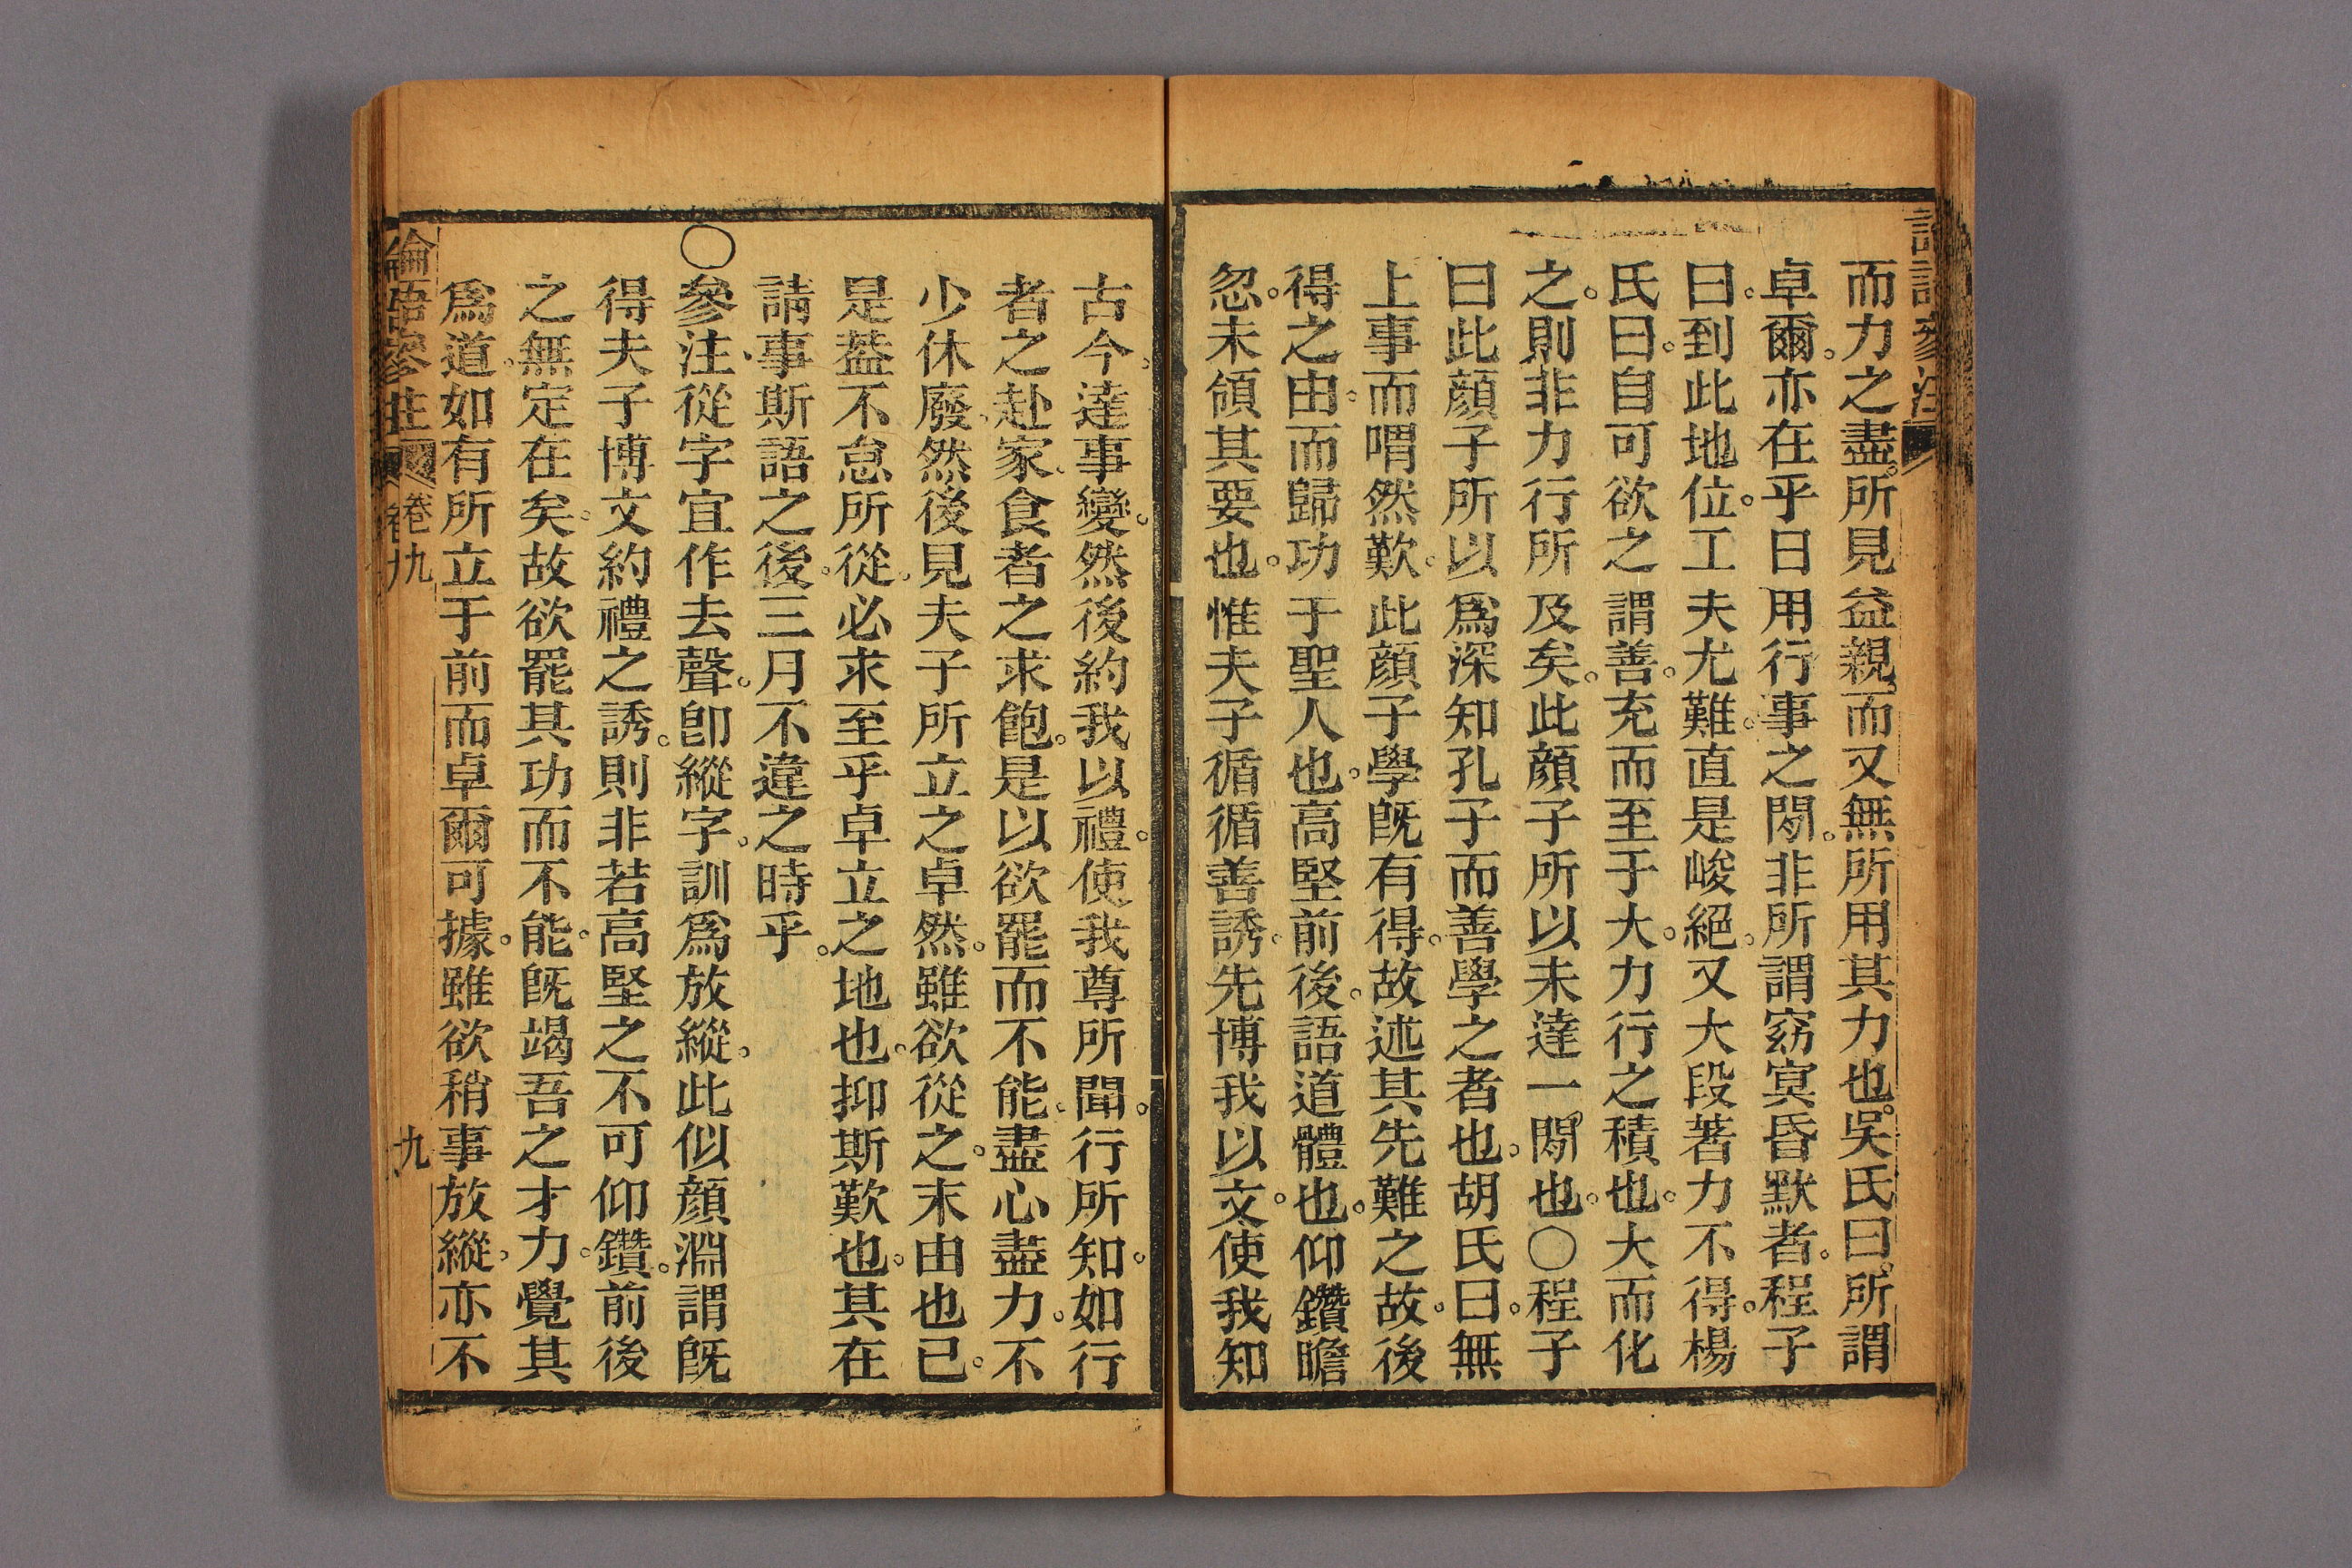 而力之盡。所見益親。而又無所用其力也。吳氏曰。所謂
卓爾。亦在乎日用行事之閒。非所謂窈冥昏默者。程子
曰。到此地位。工夫尤難。直是峻絕。又大段著力不得。楊
氏曰。自可欲之謂善。充而至于大。力行之積也。大而化
之。則非力行所及矣。此顏子所以未達一閒也。〇程子
曰此顏子所以爲深知孔子而善學之者也。胡氏曰。無
上事而喟然歎。此顏子學旣有得。故述其先難之故。後
得之由。而歸功于聖人也。高堅前後。語道體也。仰鑽瞻
忽。未領其要也。惟夫子循循善誘。先博我以文。使我知
古今。達事變。然後約我以禮。使我尊所聞。行所知。如行
者之赴家。食者之求飽。是以欲罷而不能。盡心盡力。不
少休廢。然後見夫子所立之卓然。雖欲從之。末由也已。
是葢不怠所從。必求至乎卓立之地也。抑斯歎也。其在
請事斯語之後。三月不違之時乎。
〇參注。從字宜作去聲。卽縱字。訓爲放縱。此似顏淵謂旣
得夫子博文約禮之誘。則非若高堅之不可仰鑽。前後
之無定在矣。故欲罷其功而不能。旣竭吾之才力。覺其
爲道。如有所立于前而卓爾可據。雖欲稍事放縱。亦不
論語參注 卷九 九